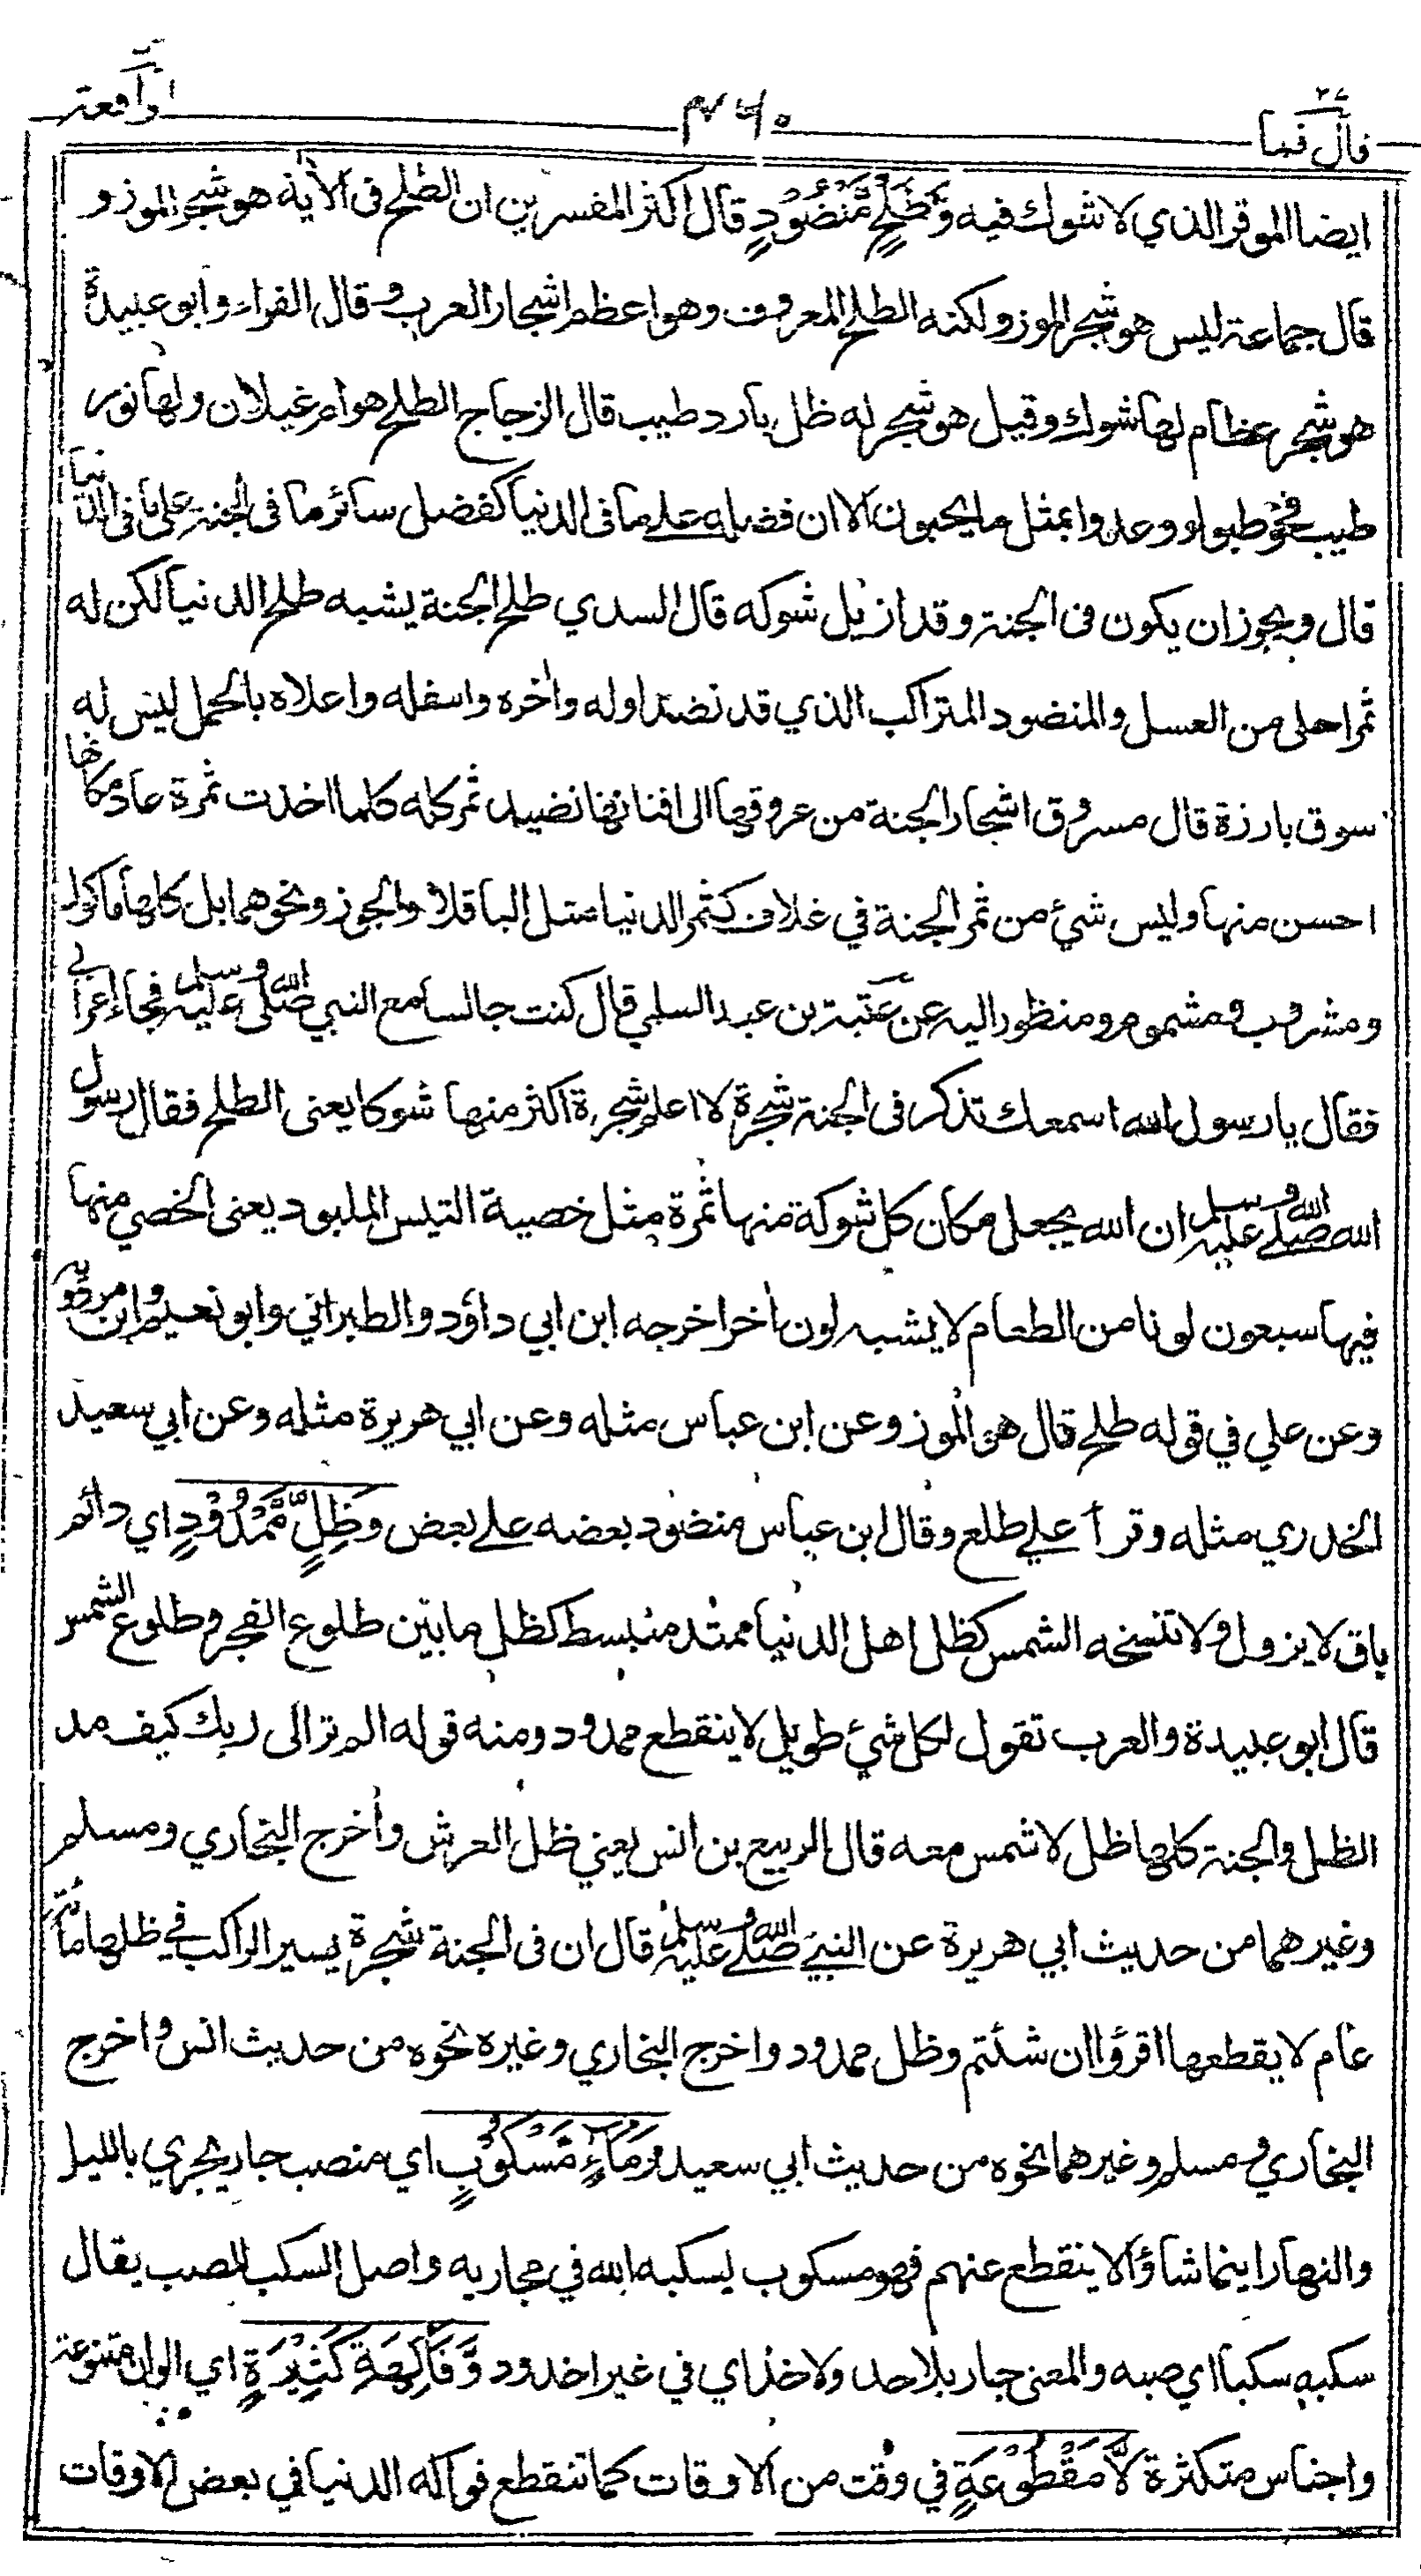 قال فما ٢٧
الواقعة
ايضا الموقر الذي لا شوك فيه وَّطَلْحٍ مَّنْضُوْدٍ قال اكثر المفسرين ان الطلح فى الأية هو شجر الموز و
قال جماعة ليس هو شجر الموز ولكنه الطلح المعروف وهو اعظم اشجار العرب وقال الفراء وابو عبيدة
هو شجر عظام لها شوك وقيل هو شجر له ظل بارد طيب قال الزجاج الطلح هو ام غيلان ولها نور
طيب فخوطبوا ووعدوا بمثل ما يحبون الا ان فضله على ما فى الدنيا كفضل سائر ما فى الجنة على ما فى الدنيا
قال ويجوز ان يكون فى الجنة وقد ازيل شوكه قال السدي طلح الجنة يشبه طلح الدنيا لكن له
ثمر احلى من العسل والمنضود المتراكب الذي قد نضد اوله واٰخره واسفله واعلاه بالحمل ليس له
سوق بارزة قال مسروق اشجار الجنة من عروقها الى افنانها نضيد ثمر كله كلما اخذت ثمرة عاد مكانها
احسن منها وليس شئ من ثمر الجنة في غلاف كثمر الدنيا مثل الباقلا والجوز ونحوهما بل كلها ماكول
ومشروب ومشموم ومنظور اليه عن عتبة بن عبد السلمي قال كنت جالسا مع النبي صلى الله عليه وسلم فجاء اعرابي
فقال يا رسول الله اسمعك تذكر فى الجنة شجرة لا اعلم شجرة اكثر منها شوكا يعنى الطلح فقال رسول
الله صلى الله عليه وسلم ان الله يجعل مكان كل شوكة منها ثمرة مثل خصية التيس الملبود يعنى الخصي منها
فيها سبعون لونا من الطعام لا يشبه لون اٰخر اخرجه ابن ابي داؤد والطبراني وابو نعيم وابن مردويه
وعن علي في قوله طلح قال هو الموز وعن ابن عباس مثله وعن ابي هريرة مثله وعن ابي سعيد
الخدري مثله وقرأ علي طلع وقال ابن عباس منضود بعضه على بعض وَظِلٍّ مَّمْدُوْدٍ اي دائم
باق لا يزول ولا تنسخه الشمس كظل اهل الدنيا ممتد منبسط كظل ما بين طلوع الفجر وطلوع الشمس
قال ابو عبيدة والعرب تقول لكل شئ طويل لا ينقطع ممدود ومنه قوله الم تر الى ربك كيف مد
الظل والجنة كلها ظل لا شمس معه قال الربيع بن انس يعني ظل العرش وأخرج البخاري ومسلم
وغيرهما من حديث ابي هريرة عن النبي صلى الله عليه وسلم قال ان فى الجنة شجرة يسير الراكب في ظلها مائة
عام لا يقطعها اقرؤا ان شئتم وظل ممدود واخرج البخاري وغيره نحوه من حديث انس واخرج
البخاري ومسلم وغيرهما نحوه من حديث ابي سعيد وَّمَاءٍ مَّسْكُوْبٍ اي منصب جار يجري بالليل
والنهار اينما شاؤا لا ينقطع عنهم فهو مسكوب يسكبه الله في مجاريه واصل السكب الصب يقال
سكبه سكبا اي صبه والمعنى جار بلا حد ولا خد اي في غير اخدود وَّفَاكِهَةٍ كَثِيْرَةٍ اي الوان متنوعة
واجناس متكثرة لَّا مَقْطُوْعَةٍ في وقت من الاوقات كما تنقطع فواكه الدنيا في بعض الاوقات